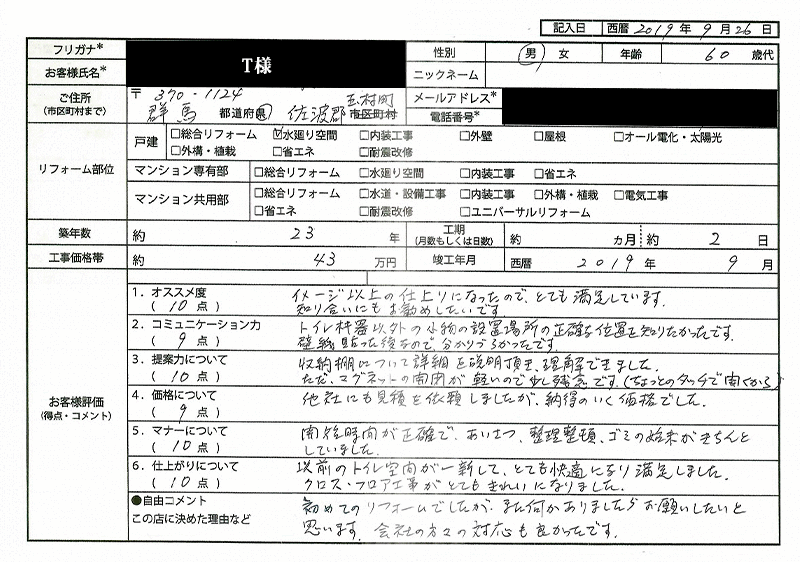 記入日 西暦 2019 年 9 月 26 日
フリガナ*
お客様氏名* T様 性別 男 女 年齢 60 歳代
ニックネーム
ご住所 (市区町村まで) 〒 370-1124 群馬 都道府県 佐波郡 玉村町 市区町村 メールアドレス*
電話番号*
リフォーム部位
戸建 □総合リフォーム ☑水廻り空間 □内装工事 □外壁 □屋根 □オール電化・太陽光
□外構・植栽 □省エネ □耐震改修
マンション専有部 □総合リフォーム □水廻り空間 □内装工事 □省エネ
マンション共用部 □総合リフォーム □水道・設備工事 □内装工事 □外構・植栽 □電気工事
□省エネ □耐震改修 □ユニバーサルリフォーム
築年数 約 23 年 工期 (月数もしくは日数) 約 ヵ月 約 2 日
工事価格帯 約 43 万円 竣工年月 西暦 2019 年 9 月
お客様評価 (得点・コメント)
1．オススメ度 (10点)
イメージ以上の仕上りになったので、とても満足しています。
知り合いにもお勧めしたいです。
2．コミュニケーション力 (9点)
トイレ杯器以外の小物の設置場所の正確な位置を知りたかったです。
壁紙貼った後なので分かりづらかったです。
3．提案力について (10点)
収納棚について詳細を説明頂き、理解できました。
ただ、マグネットの開閉が軽いので少し残念です。(ちょっとのタッチで開くから)
4．価格について (9点)
他社にも見積を依頼しましたが、納得のいく価格でした。
5．マナーについて (10点)
開始時間が正確で、あいさつ、整理整頓、ゴミの始末がきちんと
していました。
6．仕上がりについて (10点)
以前のトイレ空間が一新して、とても快適になり満足しました。
クロス・フロア工事がとてもきれいになりました。
●自由コメント
この店に決めた理由など
初めてのリフォームでしたが、また何かありましたらお願いしたいと
思います。会社の方々の対応も良かったです。